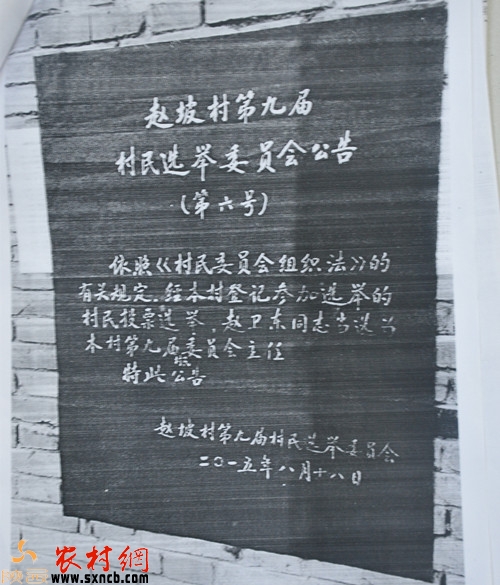 赵坡村第九届
村民选举委员会公告
(第六号)
依照《村民委员会组织法》的
有关规定,经本村登记参加选举的
村民投票选举,赵卫东同志当选为
本村第九届委员会主任
特此公告
赵坡村第九届村民选举委员会
二〇一五年八月十八日
农村網
www.sxncb.com